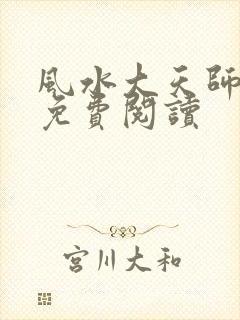 風水大天師
免費閱讀
宮川大和